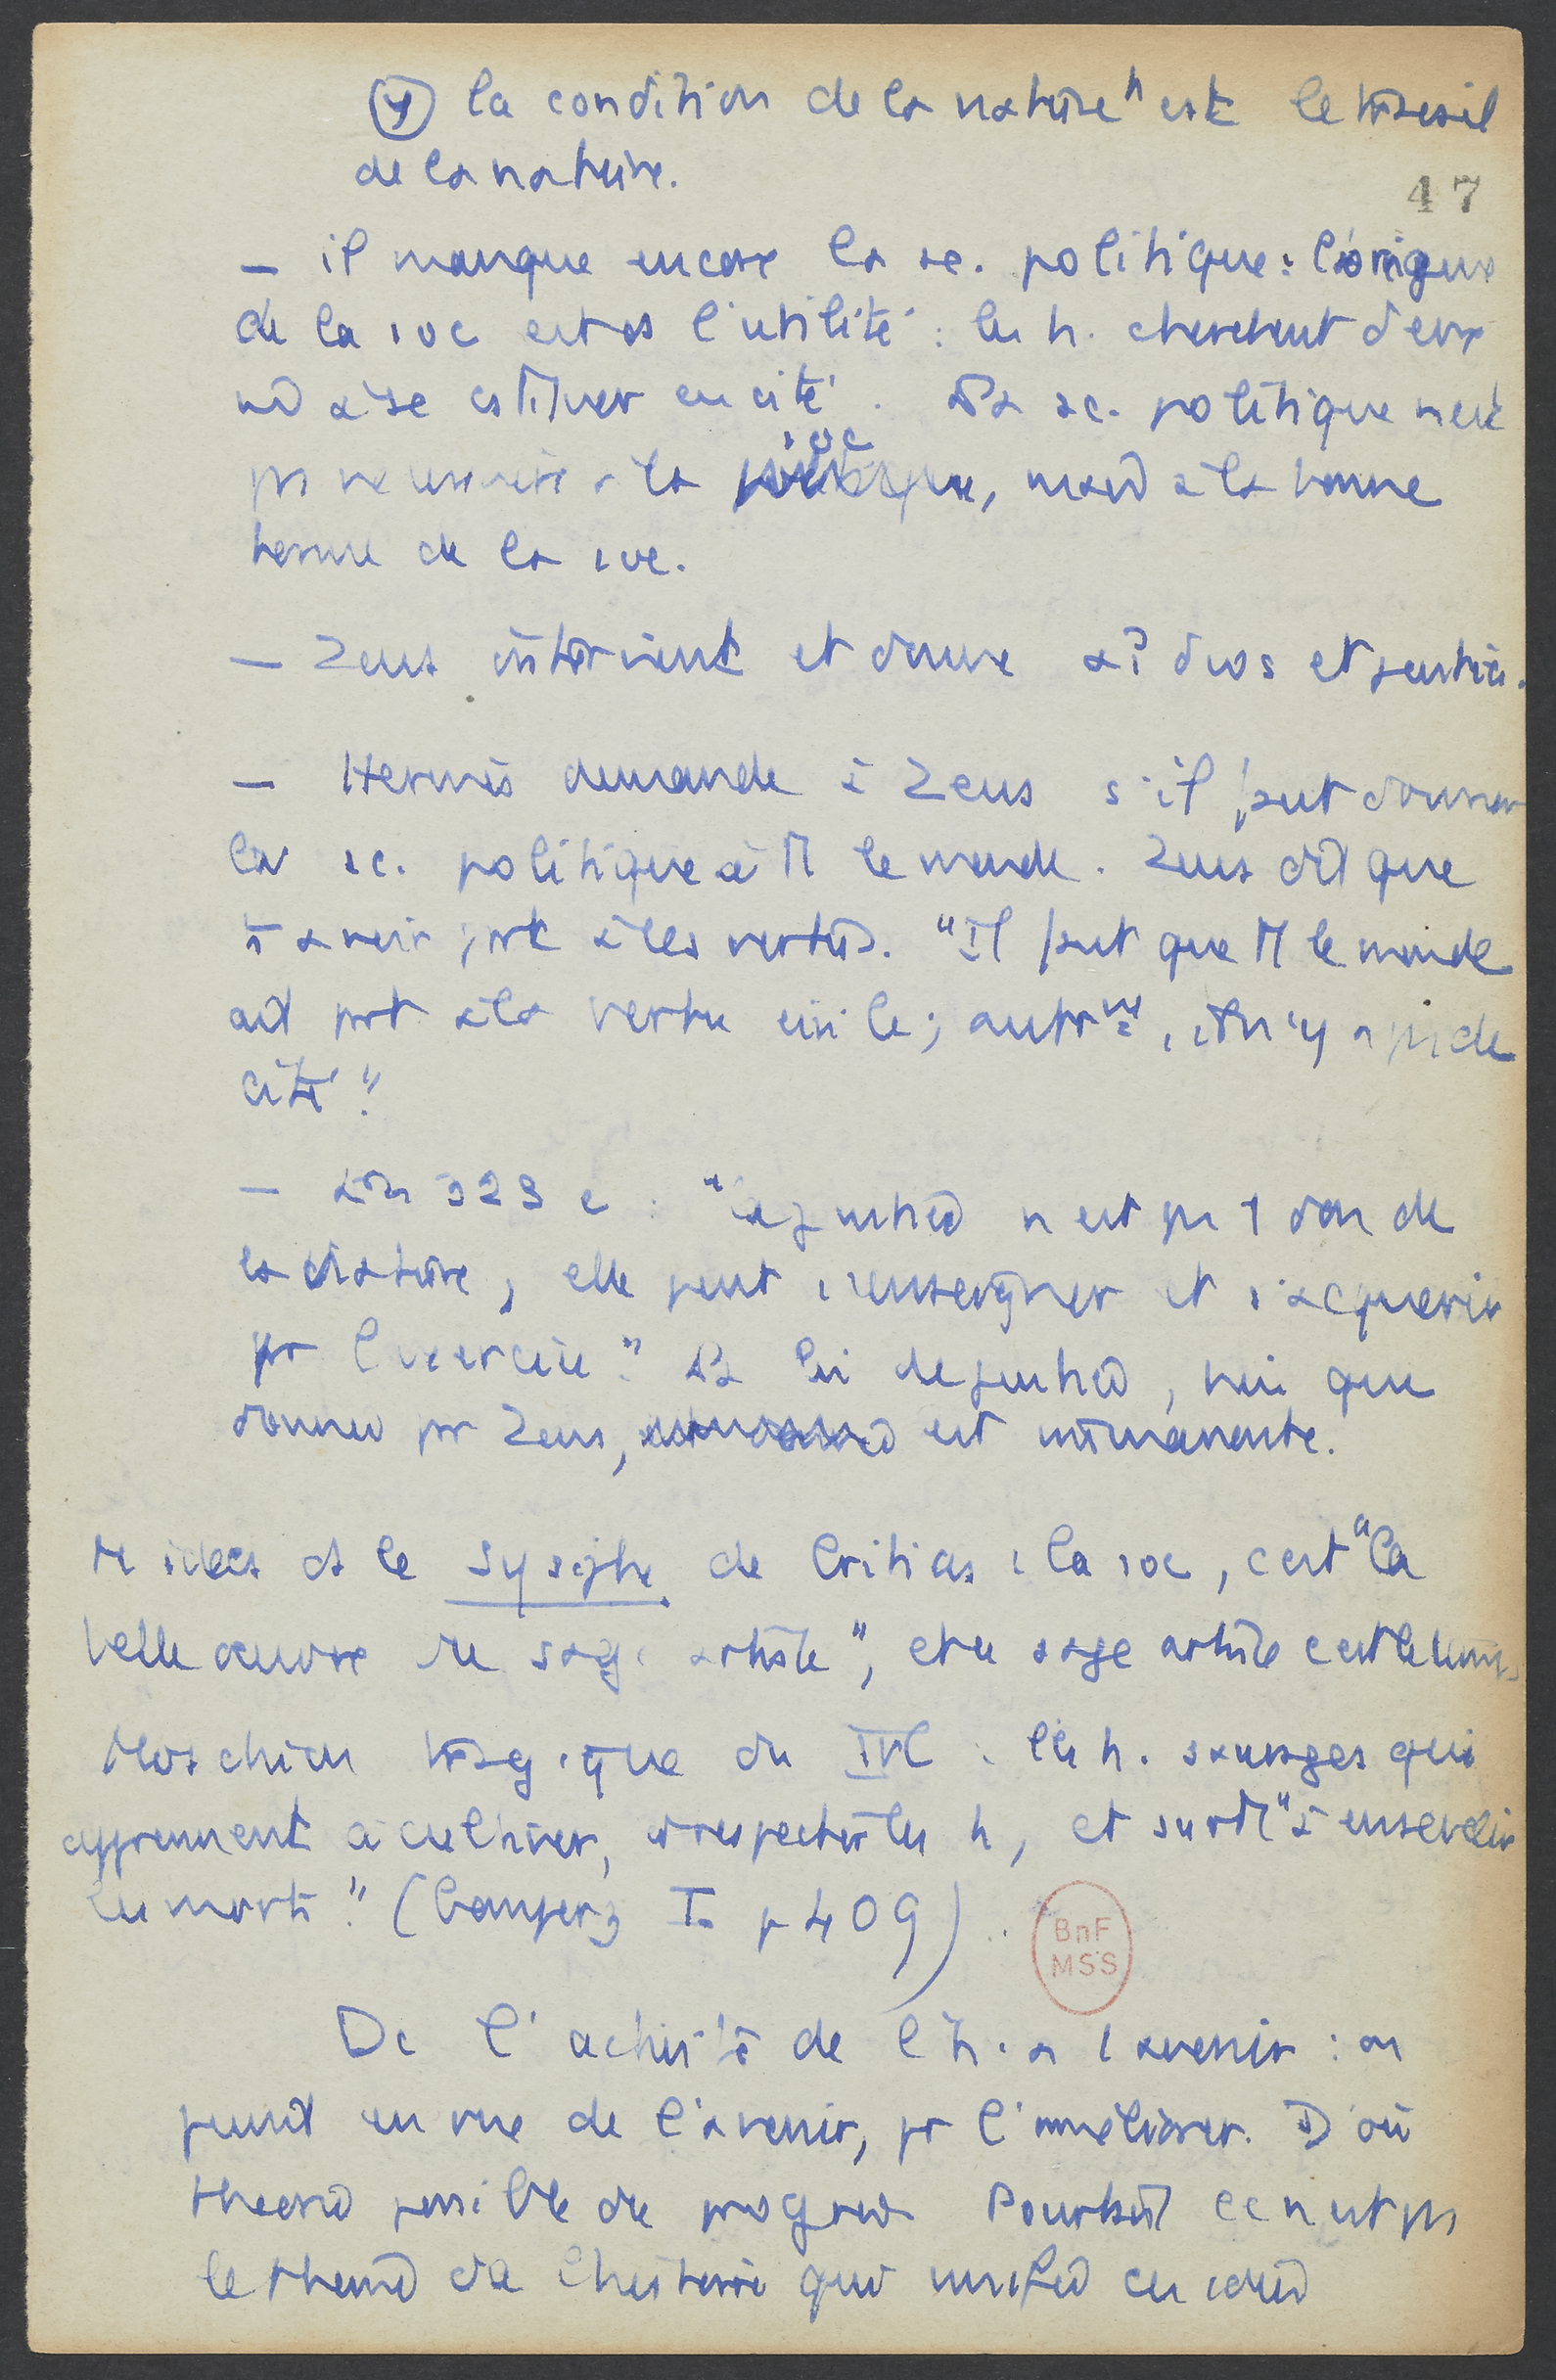 γ la condition de la nature" est le travail
de la nature.
47
– il manque encore la sc. politique : l'origine
de la soc est ds l'utilité : les h. cherchent d'eux
à se cstituer en cité. La sc. politique n'est
ps nécessaire à la soc, mais à la bonne
tenue de la soc.
– Zeus intervient et donne αἰδώς et justice.
– Hermès demande à Zeus s'il faut donner
la sc. politique à tt le monde. Zeus dit que
avoir part à les vertus. "Il faut que tt le monde
ait part à la vertu civile; autrmt, il n'y a ps de
cité".
– 323 c : "la justice n'est ps 1 don de
la nature, elle peut s'enseigner et s'acquérir
pr l'exercice". La loi de justice, bien que
donnée pr Zeus, est immanente.
M idées ds le Sysiphe de Critias : la soc, c'est "la
belle œuvre du sage artiste", et ce sage artiste c'est le temps
Moschion tragique du IVe : les h. sauvages qui
apprennent à cultiver, à respecter les h, et surtt "à ensevelir
les morts". (Gomperz I. p 409)
BnF
MSS
De l'activité de l'h. à l'avenir : on
punit en vue de l'avenir, pr l'améliorer. D'où
théorie possible du progrès. Pourtant ce n'est ps
le thème de l'histoire qui unifie ces idées